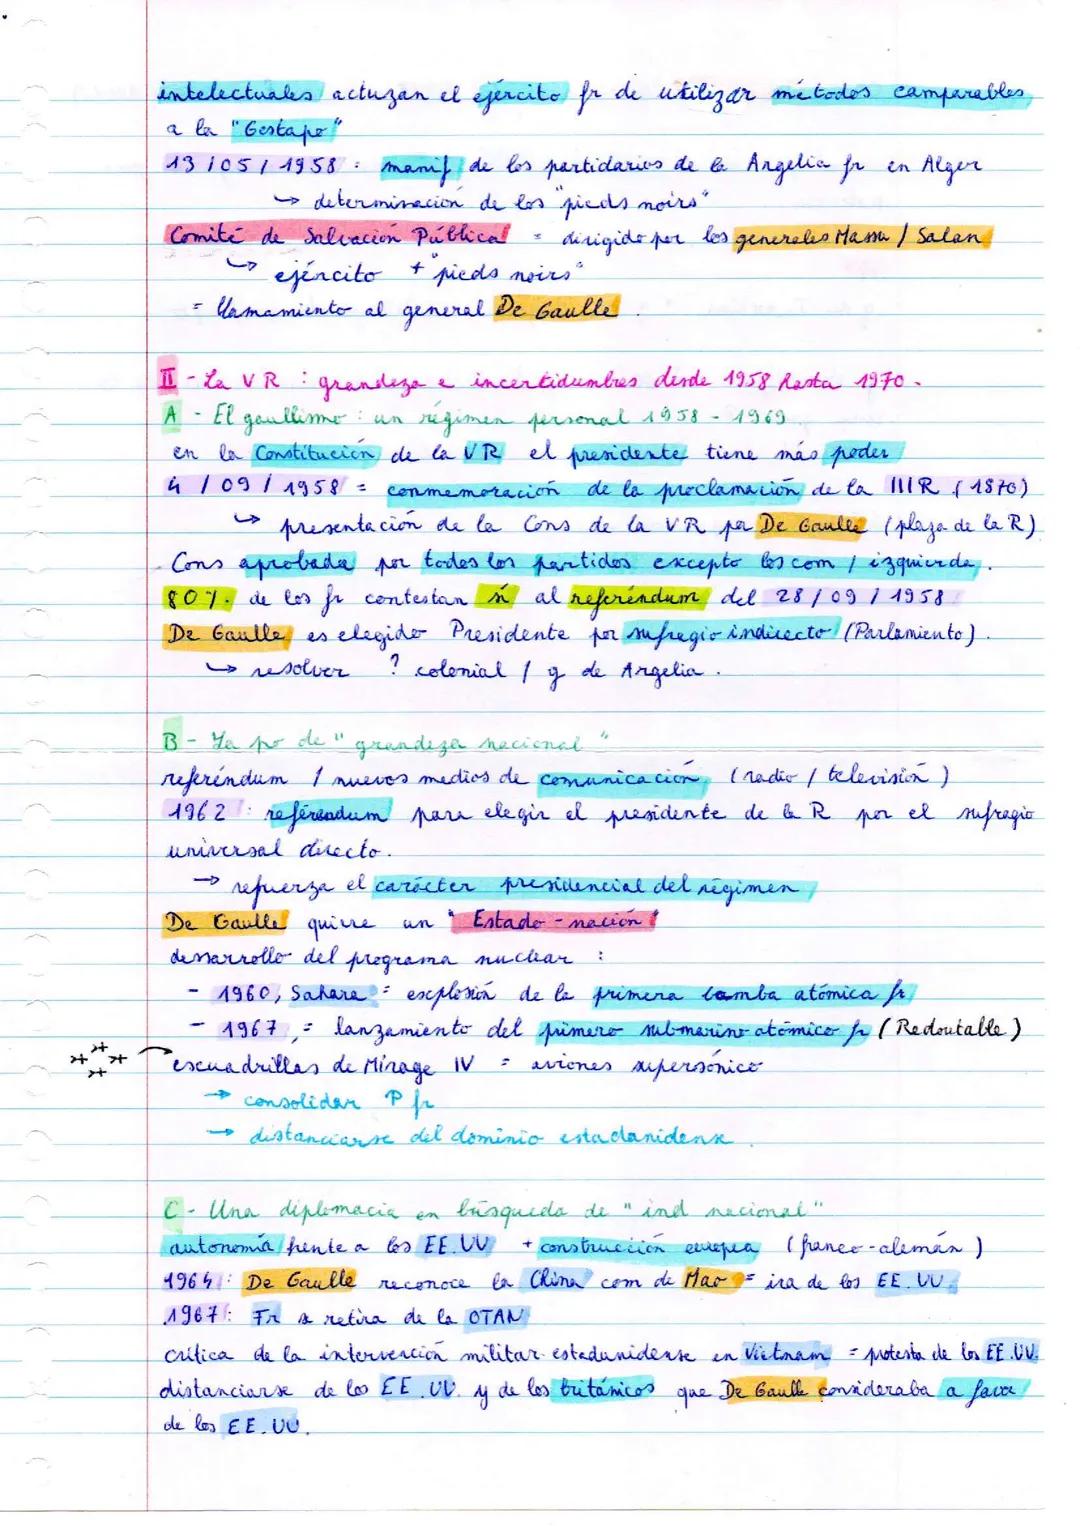 intelectuales actuzan el ejército fr de utilizar métodos comparables
a la "Gestapo"
13/05/1958 : manif de los partidarios de la Argelia fr en Alger
→ determinación de los "pieds noirs"
Comité de Salvación Pública = dirigido por los generales Massu / Salan
↳ ejército + "pieds noirs"
= llamamiento al general De Gaulle.
II - La VR : grandeza e incertidumbres desde 1958 hasta 1970.
A - El gaullismo : un régimen personal 1958 - 1969
en la Constitución de la VR el presidente tiene más poder
4/09/1958 = conmemoración de la proclamación de la IIIR (1870)
↳ presentación de la Cons de la VR por De Gaulle (plaza de la R)
Cons aprobada por todos los partidos excepto los com / izquierda.
80% de los fr contestan sí al referéndum del 28/09/1958
De Gaulle es elegido Presidente por sufragio indirecto (Parlamiento).
↳ resolver ? colonial / g de Argelia.
B - La po de "grandeza nacional"
referéndum / nuevos medios de comunicación (radio / televisión)
1962 : referéndum para elegir el presidente de la R por el sufragio
universal directo.
→ refuerza el carácter presidencial del régimen
De Gaulle quiere un "Estado-nación"
desarrollo del programa nuclear :
- 1960, Sahara = explosión de la primera bomba atómica fr
- 1967, = lanzamiento del primero submarino atómico fr (Redoutable)
escuadrillas de Mirage IV = aviones supersónico
→ consolidar P fr
→ distanciarse del dominio estadanidense.
C - Una diplomacia en búsqueda de "ind nacional"
autonomía frente a los EE.UU + construcción europea (franco-alemán)
1964 : De Gaulle reconoce la China com de Mao = ira de los EE.UU.
1967 : Fr se retira de la OTAN
crítica de la intervención militar estadunidense en Vietnam = protesta de los EE.UU.
distanciarse de los EE.UU. y de los británicos que De Gaulle consideraba a favor
de los EE.UU.